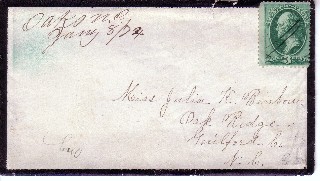 Oaks N.C.
Jany 8/74
Miss Julia K.
Oak Ridge
Guilford Co
N. C.
3